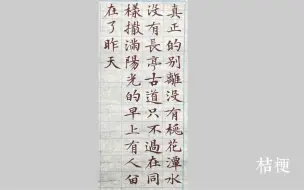 真正的别離没有桃花潭水
没有長亭古道只不過在同
樣撒滿陽光的早上有人留
在了昨天
桔梗